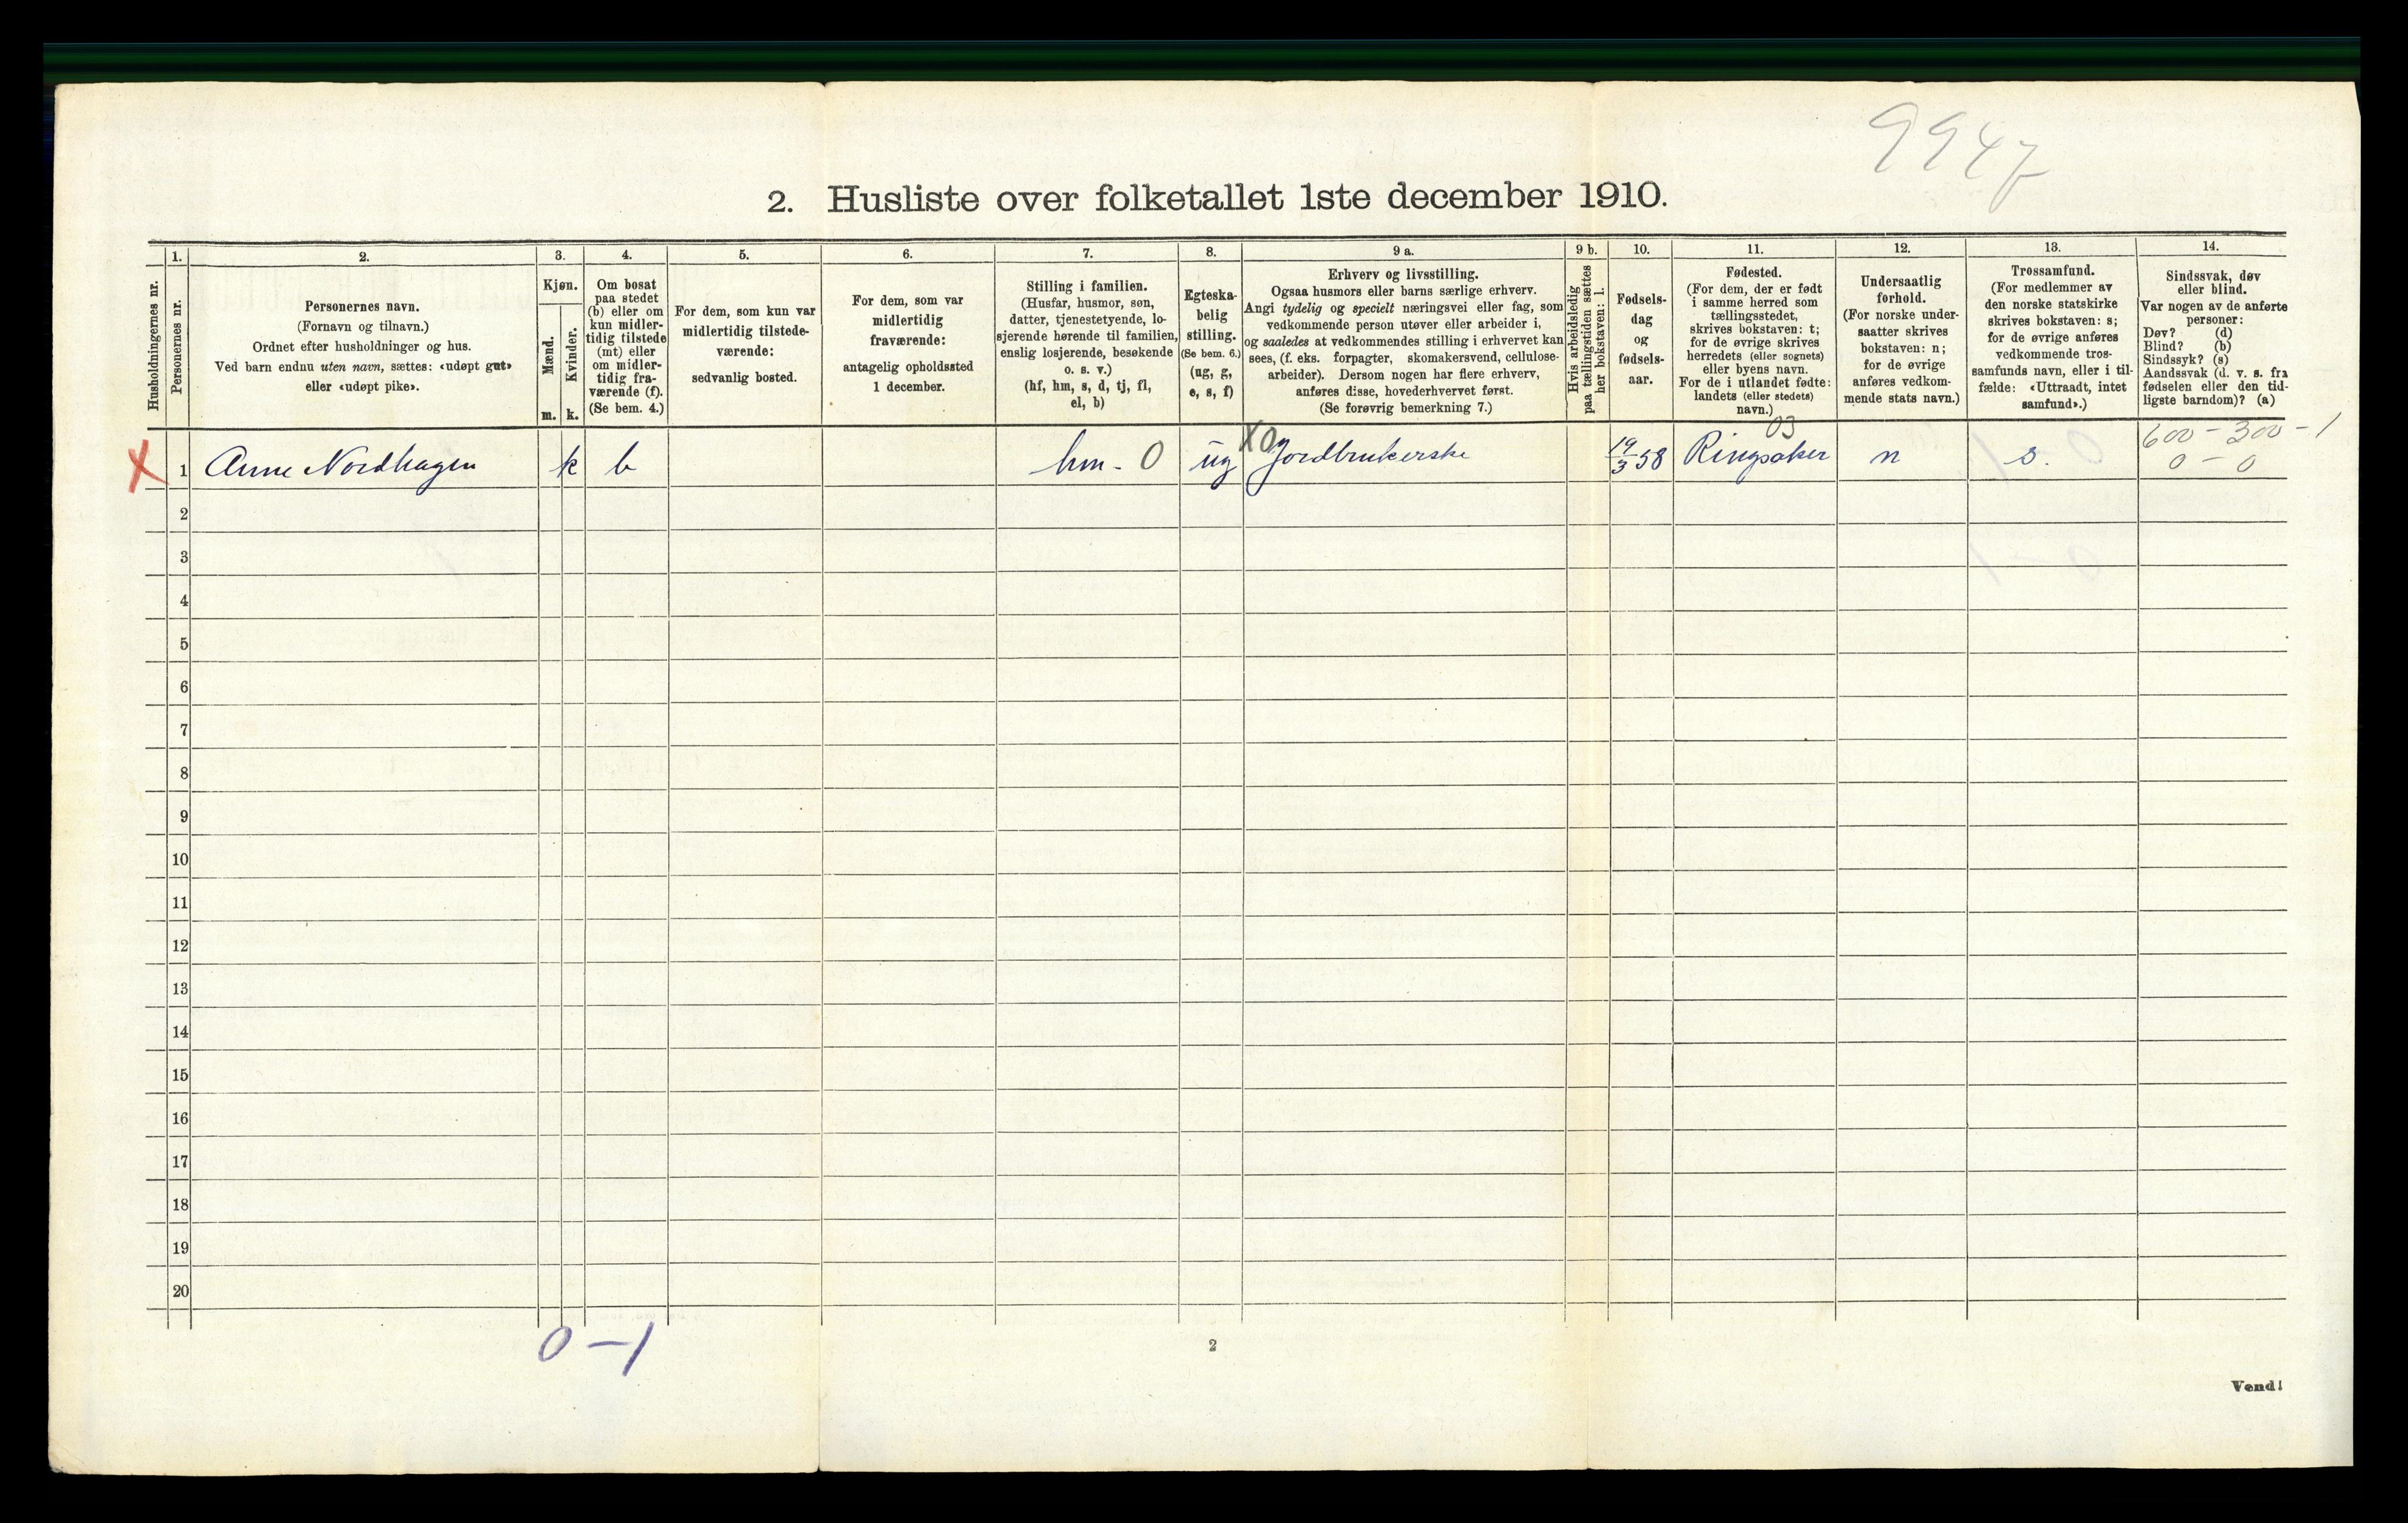 9947
2. Husliste over folketallet 1ste december 1910.
Husholdningernes nr.
1.
Personernes nr.
2.
Personernes navn.
(Fornavn og tilnavn.)
Ordnet efter husholdninger og hus.
Ved barn endnu uten navn, sættes: «udøpt gut»
eller «udøpt pike».
3.
Kjøn.
Mænd.
m.
Kvinder.
k.
4.
Om bosat
paa stedet
(b) eller om
kun midler-
tidig tilstede
(mt) eller
om midler-
tidig fra-
værende (f).
(Se bem. 4.)
5.
For dem, som kun var
midlertidig tilstede-
værende:
sedvanlig bosted.
6.
For dem, som var
midlertidig
fraværende:
antagelig opholdssted
1 december.
7.
Stilling i familien.
(Husfar, husmor, søn,
datter, tjenestetyende, lo-
sjerende hørende til familien,
enslig losjerende, besøkende
o. s. v.)
(hf, hm, s, d, tj, fl,
el, b)
8.
Egteska-
belig
stilling.
(Se bem. 6.)
(ug, g,
e, s, f)
9 a.
Erhverv og livsstilling.
Ogsaa husmors eller barns særlige erhverv.
Angi tydelig og specielt næringsvei eller fag, som
vedkommende person utøver eller arbeider i,
og saaledes at vedkommendes stilling i erhvervet kan
sees, (f. eks. forpagter, skomakersvend, cellulose-
arbeider). Dersom nogen har flere erhverv,
anføres disse, hovederhvervet først.
(Se forøvrig bemerkning 7.)
9 b.
Hvis arbeidsledig
paa tællingstiden sættes
her bokstaven: l.
10.
Fødsels-
dag
og
fødsels-
aar.
11.
Fødested.
(For dem, der er født
i samme herred som
tællingsstedet,
skrives bokstaven: t;
for de øvrige skrives
herredets (eller sognets)
eller byens navn.
For de i utlandet fødte:
landets (eller stedets)
navn.)
12.
Undersaatlig
forhold.
(For norske under-
saatter skrives
bokstaven: n;
for de øvrige
anføres vedkom-
mende stats navn.)
13.
Trossamfund.
(For medlemmer av
den norske statskirke
skrives bokstaven: s;
for de øvrige anføres
vedkommende tros-
samfunds navn, eller i til-
fælde: «Uttraadt, intet
samfund».)
14.
Sindssvak, døv
eller blind.
Var nogen av de anførte
personer:
Døv? (d)
Blind? (b)
Sindssyk? (s)
Aandssvak (d. v. s. fra
fødselen eller den tid-
ligste barndom)? (a)
X 1 Anne Nordhagen k b hm - 0 ug X0 Jordbrukerske 19/3 58 03 Ringsaker n s. 600 - 300 - 1
0 - 0
2
3
4
5
6
7
8
9
10
11
12
13
14
15
16
17
18
19
20
0 - 1
2
Vend!